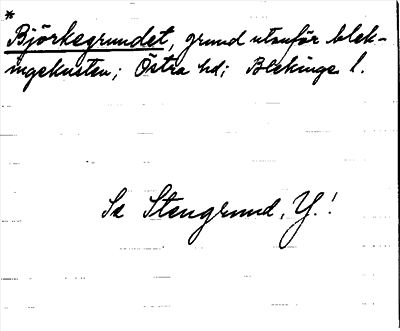 *
Björkegrundet, grund utanför blek-
ingekusten; Östra hd; Blekinge l.
Se Stengrund, Y.!